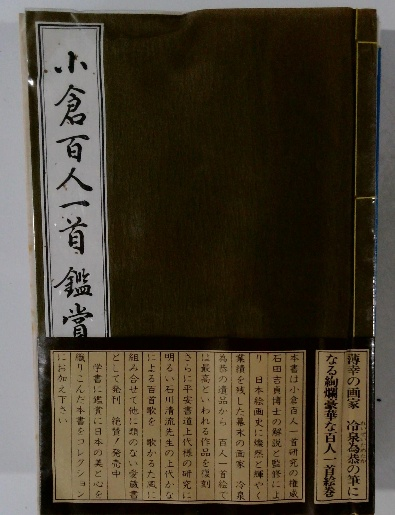 小倉百人一首鑑賞
薄幸の画家 冷泉為恭の筆に
なる絢爛豪華な百人一首絵巻
本書は小倉百人一首研究の権威
石田吉貞博士の解説と監修によ
り 日本絵画史に燦然と輝やく
業績を残した幕末の画家 冷泉
為恭の遺品から 百人一首絵で
は最高といわれる作品を復刻
さらに平安書道上代様の研究に
明るい石川清流先生の上代かな
による百首歌を 歌かるた風に
組み合せて他に類のない愛蔵書
として発刊 絶賛!発売中
学書に鑑賞に日本の美と心を
織りこんだ本書をコレクション
にお加え下さい